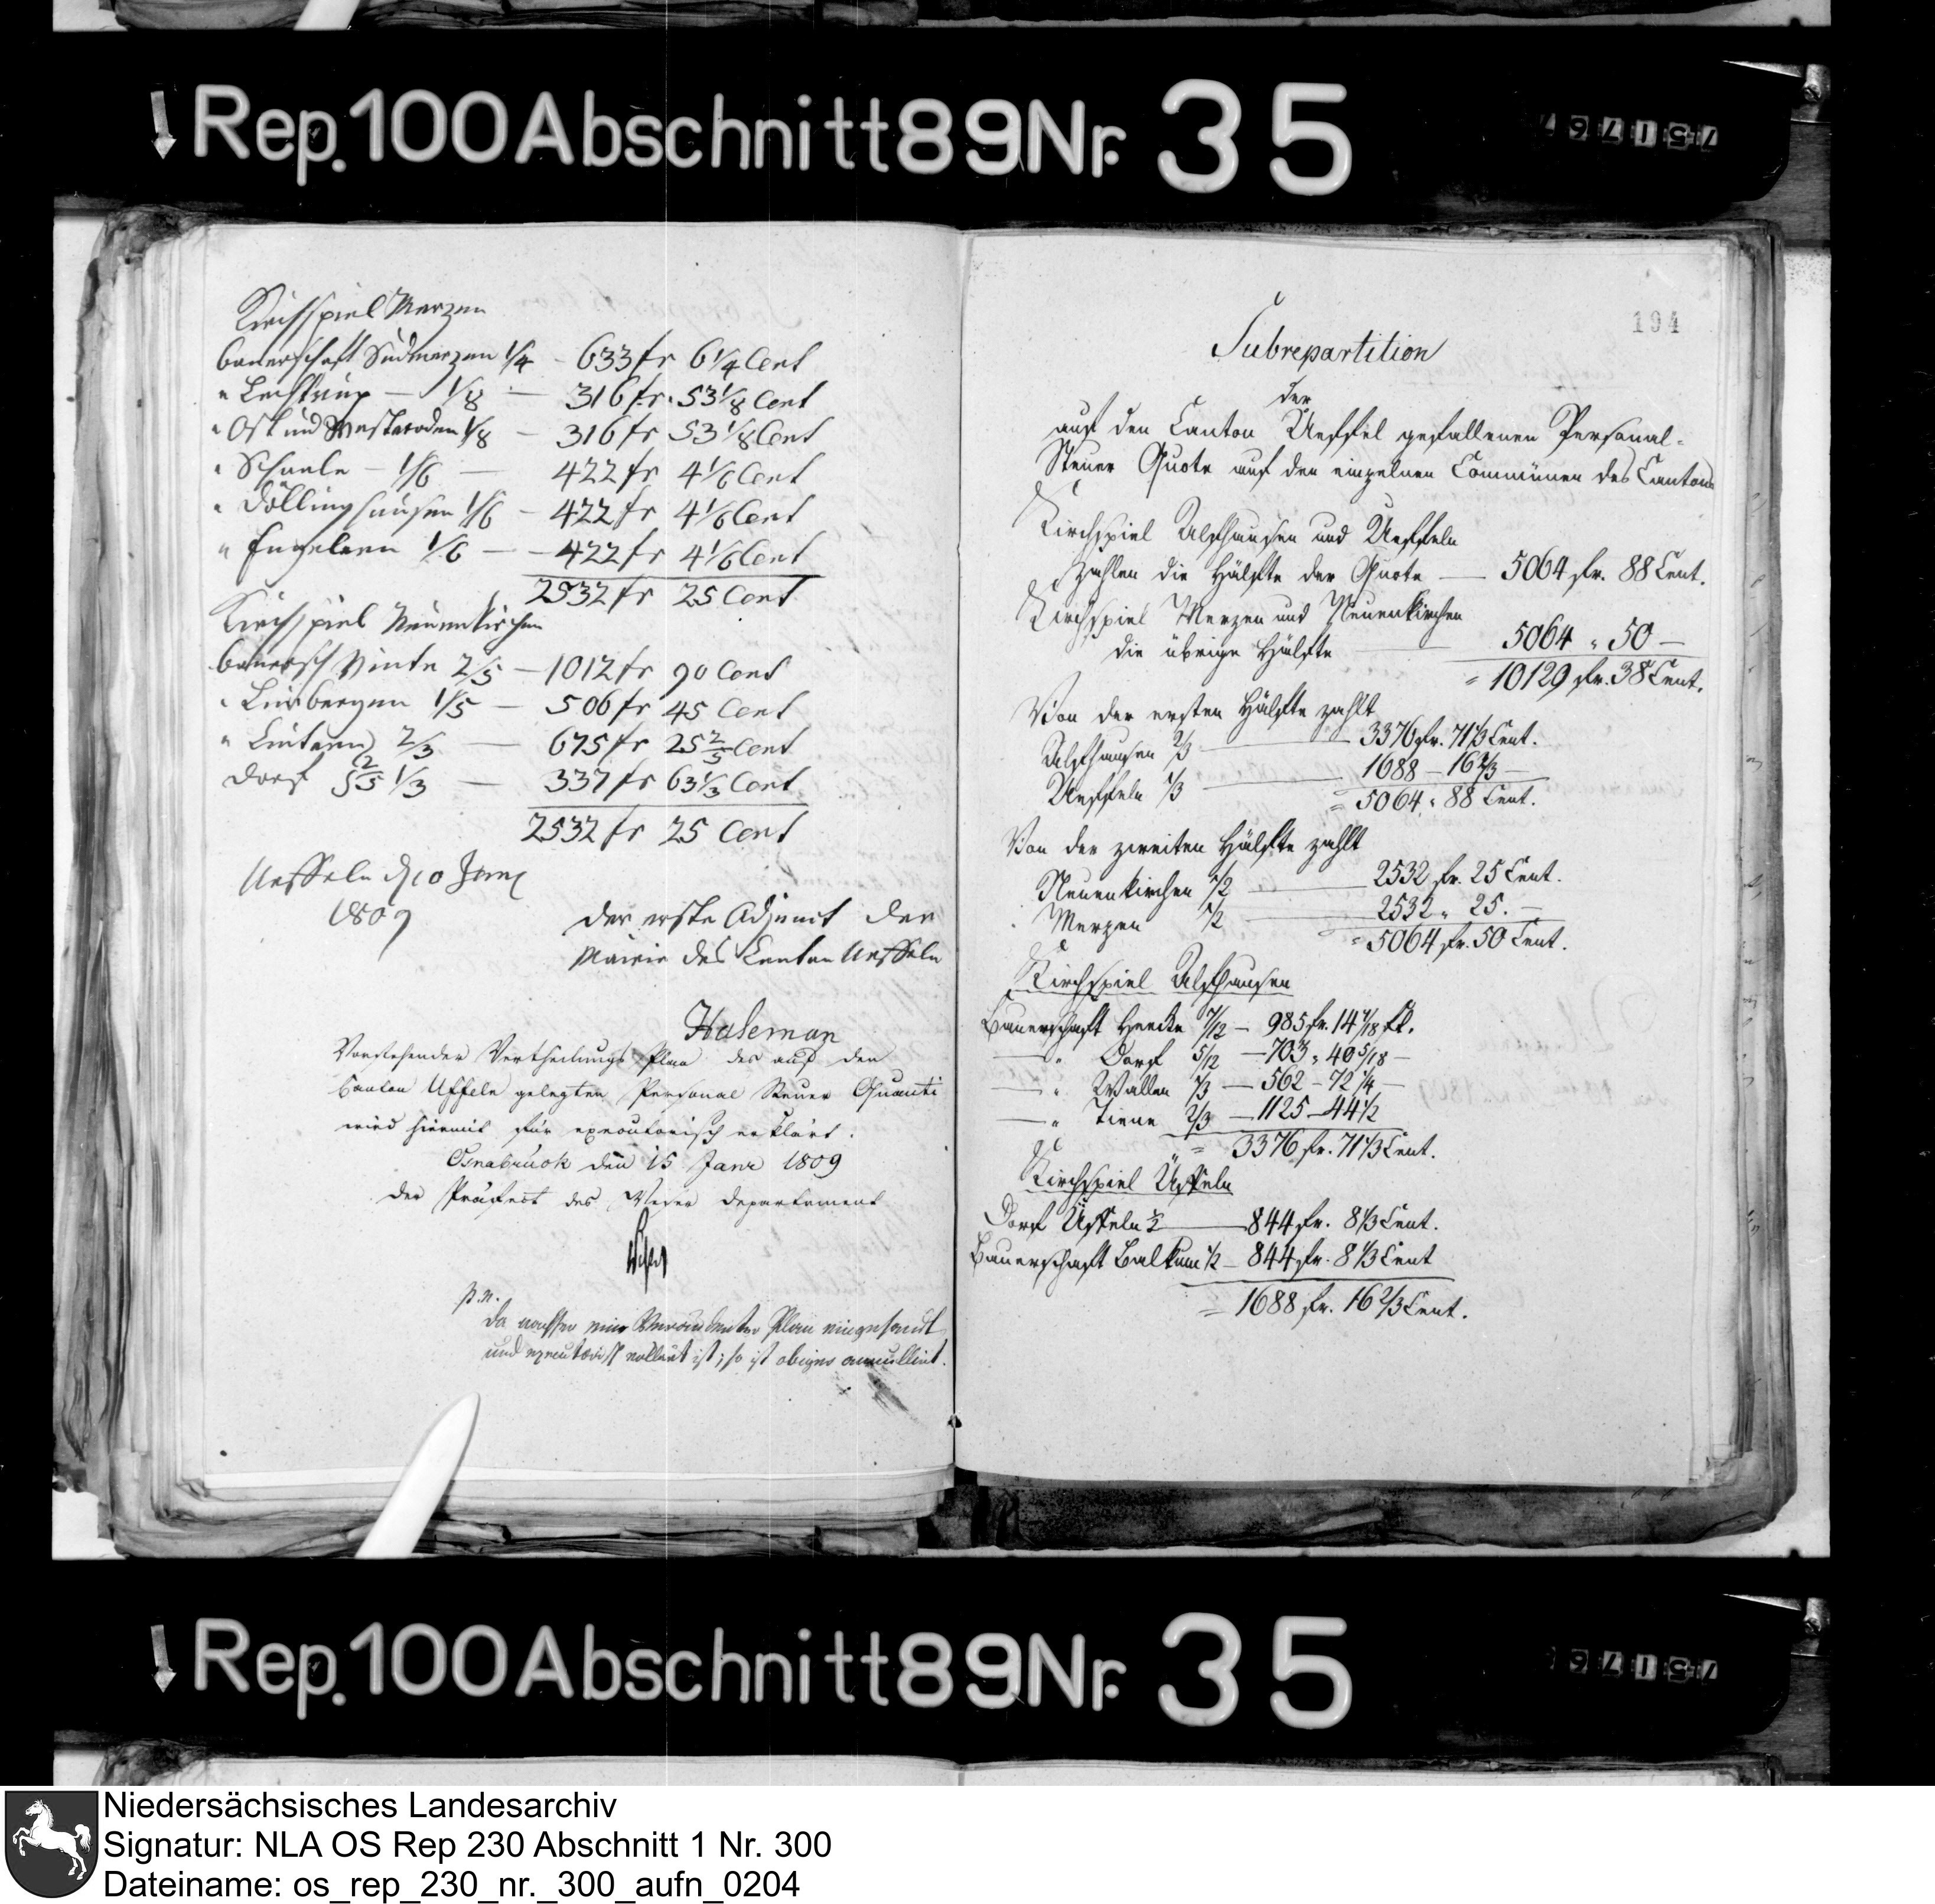 Rep. 100 Abschnitt 89 Nr. 35
Kirchspiel Merzen
Bauerschaft Südmerzen 1/4 - 633 fr 6 1/4 Cent
" Lechtrup - 1/8 - 316 fr. 53 1/8 Cent
" Ost und Westeroden 1/8 - 316 fr 53 1/8 Cent
" Schaale - 1/6 - 422 fr 4 1/6 Cent
" Döllinghausen 1/6 - 422 fr 4 1/6 Cent
" Engelern 1/6 - 422 fr 4 1/6 Cent
2532 fr 25 Cent
Kirchspiel Neuenkirchen
Bauersch Vinte 2/5 - 1012 fr 90 Cent
" Limbergen 1/5 - 506 fr 45 Cent
" Lintern 2/3 - 675 fr 25 2/5 Cent
Dorf 2/5 1/3 - 337 fr 63 1/3 Cent
2532 fr 25 Cent
Uesseln d 10 Jany
1809
der erste Adjunct der
Mairie des Canton Ueffeln
Haleman
Vorstehender Vertheilungs Plan des auf den
Canton Uffeln gelegten Personal Steuer Quanti
wird hiermit für executorisch erklärt.
Osnabrück den 15 Janr 1809
der Präfect des Weser Departement
p. n.
da nachher ein veränderter Plan eingesandt
und executorisch erklärt ist; so ist obiges annullirt.
194
Subrepartition
der
auf den Canton Ueffel gefallenen Personal-
Steuer Quote auf den einzelnen Communen des Cantons
Kirchspiel Alfhausen und Ueffeln
zahlen die Hälfte der Quote - 5064 fr. 88 Cent.
Kirchspiel Merzen und Neuenkirchen
die übrige Hälfte 5064 " 50 -
= 10129 fr. 38 Cent.
Von der ersten Hälfte zahlt
Alfhausen 2/3 - 3376 fr. 71 1/3 Cent.
Ueffeln 1/3 - 1688 - 16 2/3 -
= 5064 " 88 Cent.
Von der zweiten Hälfte zahlt
Neuenkirchen 1/2 - 2532 fr. 25 Cent.
Merzen 1/2 - 2532 " 25. -
= 5064 fr. 50 Cent.
Kirchspiel Alfhausen
Bauerschaft Heeke 7/12 - 985 fr. 14 7/18 Ct.
- " Dorf 5/12 - 703 " 40 5/18 -
- " Wallen 1/3 - 562 - 72 1/4 -
- " Tiene 2/3 - 1125 - 44 1/2
= 3376 fr. 71 1/3 Cent.
Kirchspiel Üffeln
Dorf Üffeln 1/2 - 844 fr. 8 1/3 Cent.
Bauerschaft Balkum 1/2 - 844 fr. 8 1/3 Cent
= 1688 fr. 16 2/3 Cent.
Rep. 100 Abschnitt 89 Nr. 35
Niedersächsisches Landesarchiv
Signatur: NLA OS Rep 230 Abschnitt 1 Nr. 300
Dateiname: os_rep_230_nr._300_aufn_0204